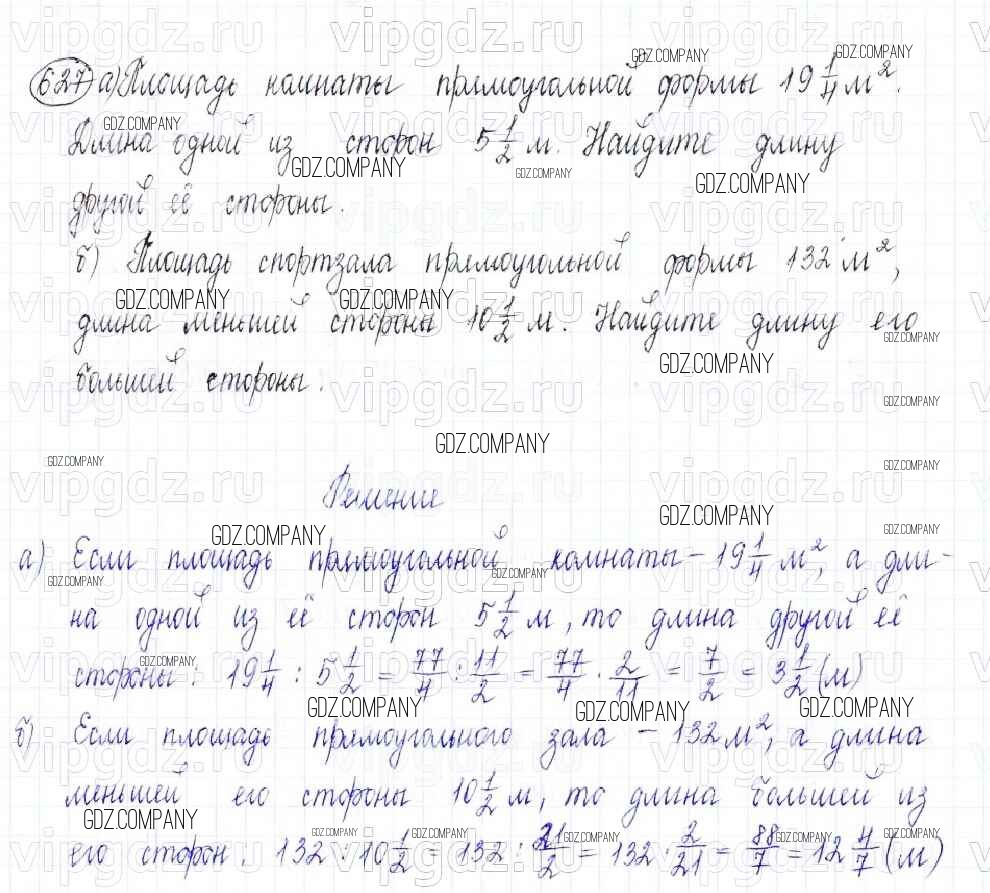 627 а) Площадь комнаты прямоугольной формы 19 1/4 м².
Длина одной из сторон 5 1/2 м. Найдите длину
другой её стороны.
б) Площадь спортзала прямоугольной формы 132 м²,
длина меньшей стороны 10 1/2 м. Найдите длину его
большей стороны.
GDZ.COMPANY
Решение
а) Если площадь прямоугольной комнаты – 19 1/4 м², а дли-
на одной из её сторон 5 1/2 м, то длина другой её
стороны: 19 1/4 : 5 1/2 = 77/4 : 11/2 = 77/4 · 2/11 = 7/2 = 3 1/2 (м)
б) Если площадь прямоугольного зала – 132 м², а длина
меньшей его стороны 10 1/2 м, то длина большей из
его сторон: 132 : 10 1/2 = 132 : 21/2 = 132 · 2/21 = 88/7 = 12 4/7 (м)
vipgdz.ru